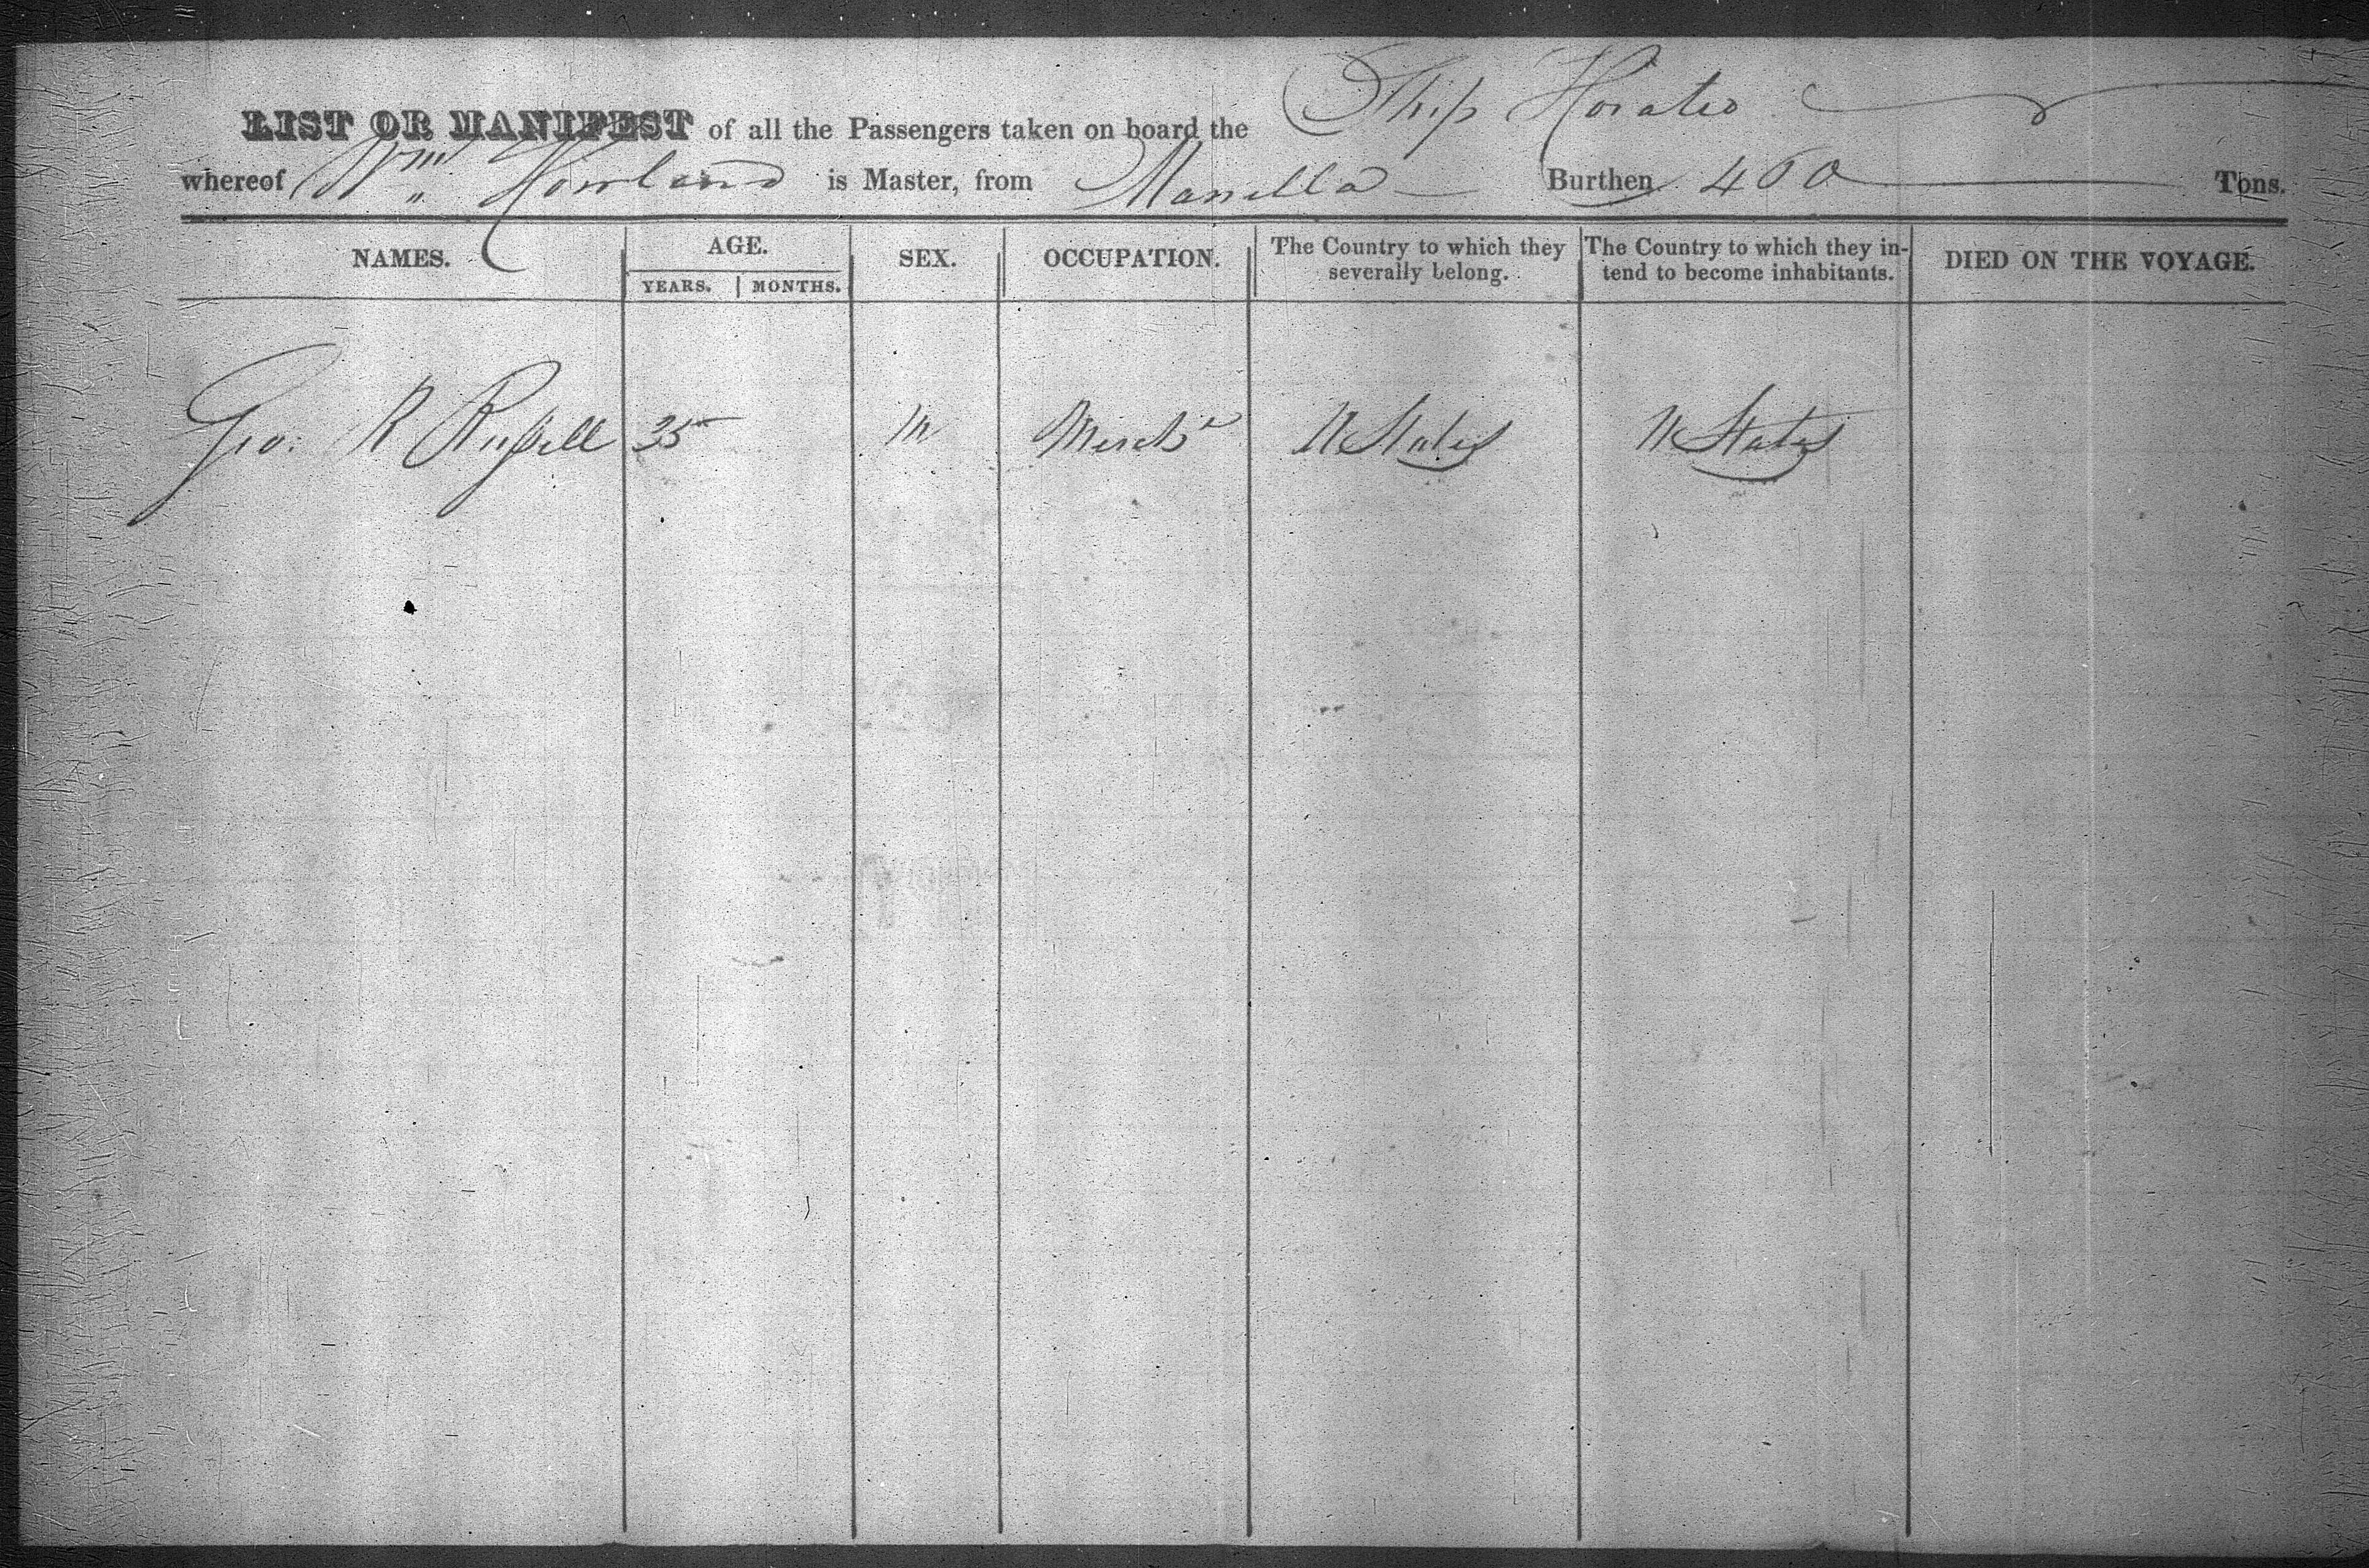 LIST OR MANIFEST of all the Passengers taken on board the Ship Horatio
whereof Wm Howland is Master, from Manilla Burthen 460 Tons.
NAMES. AGE. SEX. OCCUPATION. The Country to which they severally belong. The Country to which they intend to become inhabitants. DIED ON THE VOYAGE.
YEARS. MONTHS.
Geo. R Russell 35 M Mercht U States U States